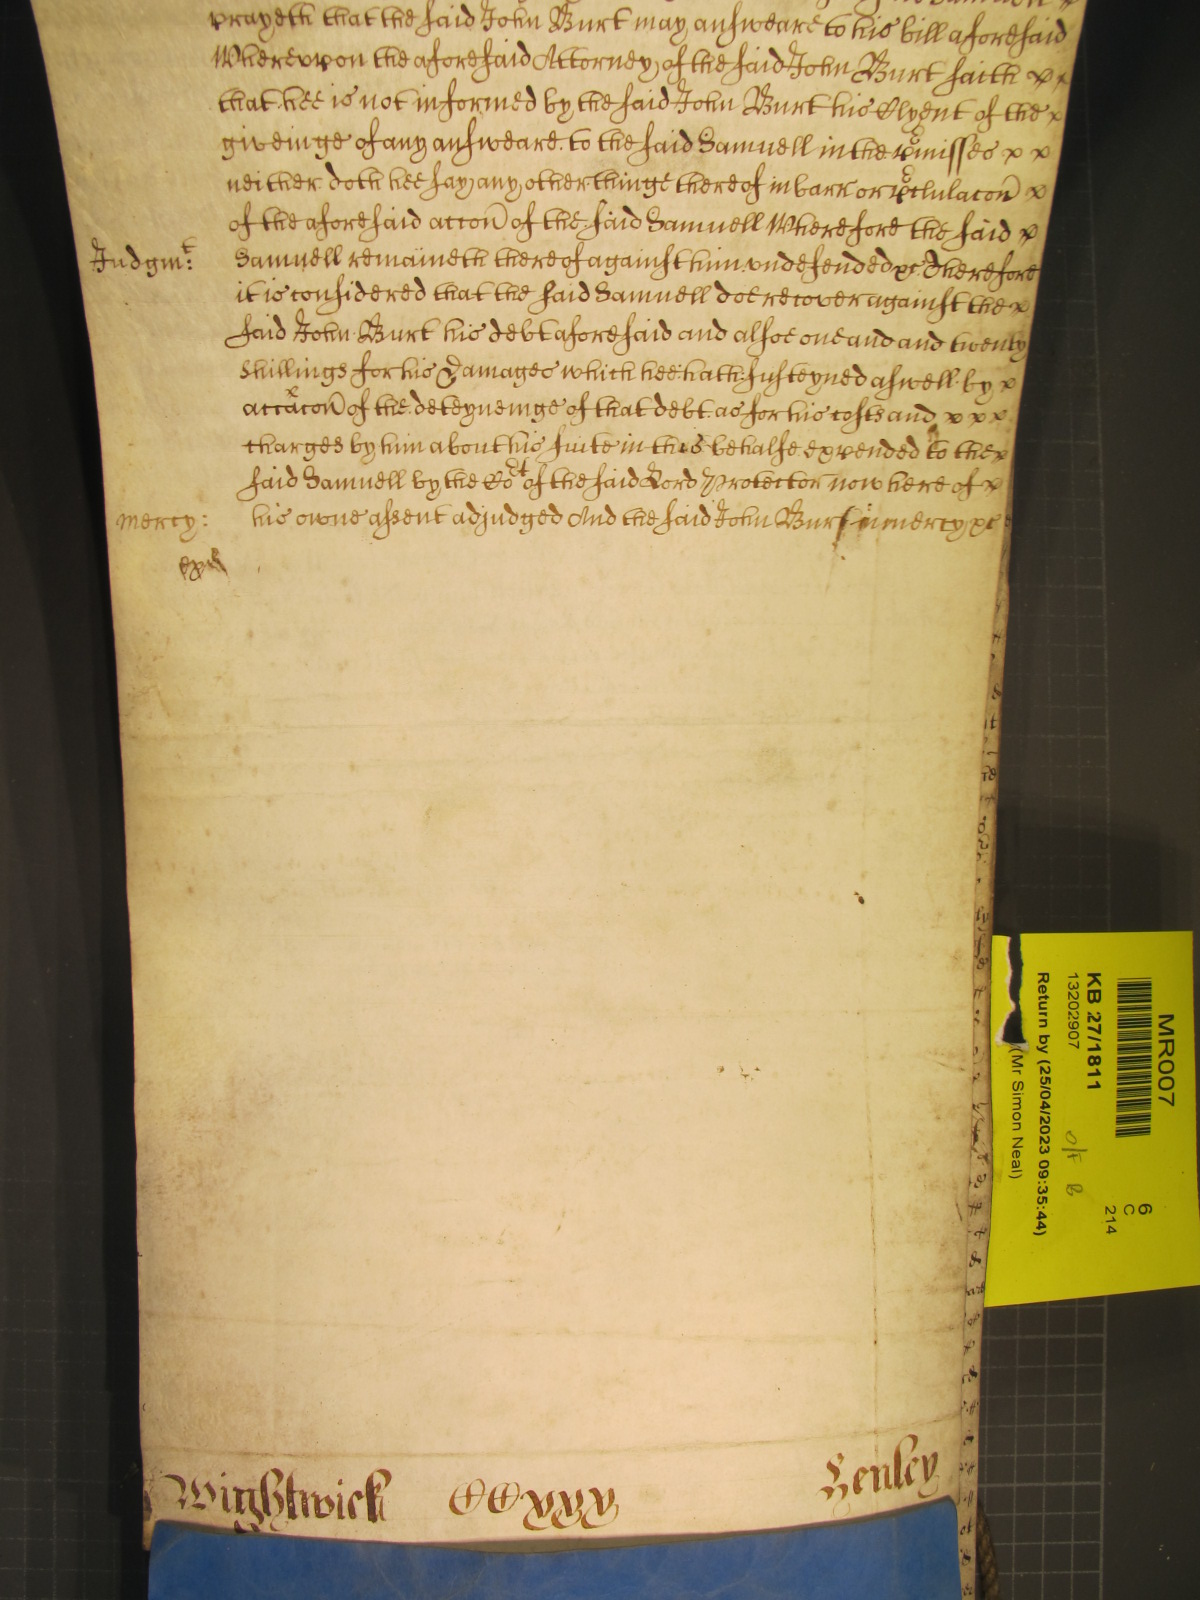 prayeth that the said John Burt may answeare to his bill aforesaid
Whereupon the aforesaid Attorney of the said John Burt saith x x
that hee is not informed by the said John Burt his Clyent of the x
giveinge of any answeare to the said Samuell in the p'misses x x
neither doth hee say any other thinge thereof in barr or p'clulacon x
of the aforesaid accon of the said Samuell Wherefore the said x
Judgmt: Samuell remaineth thereof against him undefended xc Therefore
it is considered that the said Samuell doe recover against the x
said John Burt his debt aforesaid and alsoe one and and twenty
shillings for his Damages which hee hath susteyned aswell by x
accacon of the deteyneinge of that debt as for his costs and x x x
charges by him about his suite in this behalfe expended to the x
said Samuell by the Cot of the said Lord Protector now here of x
mercy: his owne assent adjudged And the said John Burt in mercy xc
Wightwick CCxxx Henley
MR007
KB 27/1811
13202907
Return by (25/04/2023 09:35:44)
(Mr Simon Neal)
O/F B
6
C
214